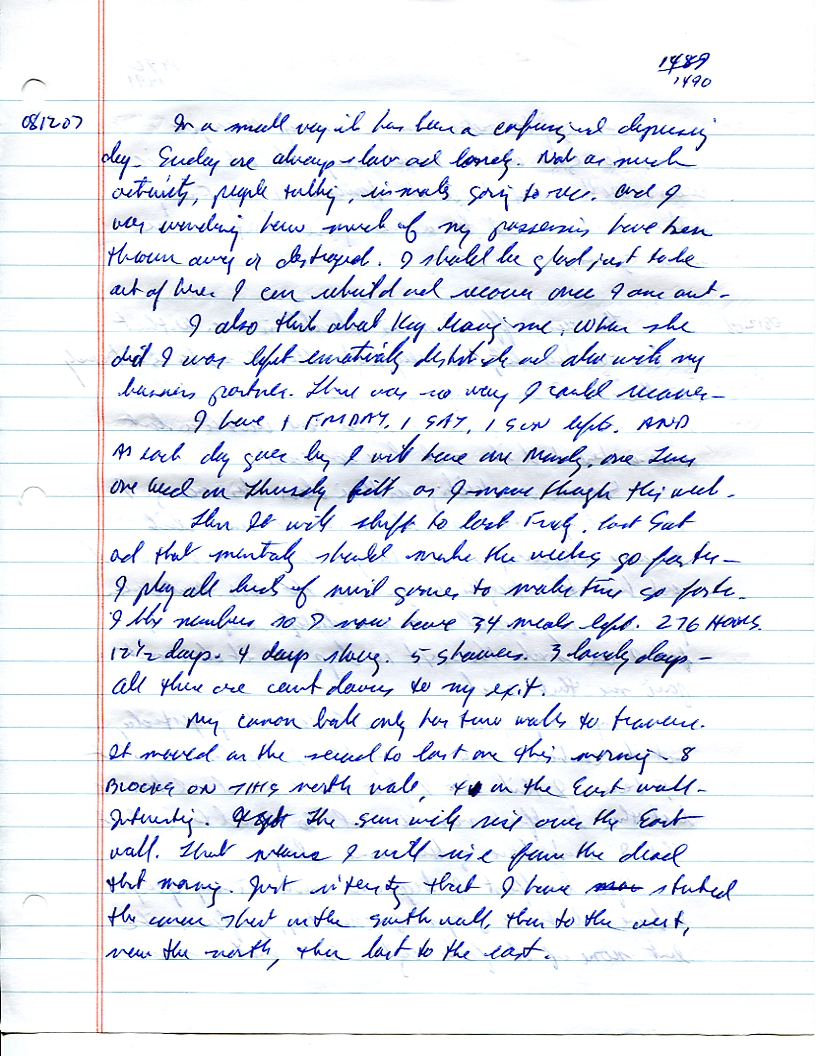 1489
1490
081207
In a small way it has been a confusing and depressing
day. Sunday are always slow and lonely. Not as much
activity, people talking, inmates going to rec. And I
was wondering how much of my possessions have been
thrown away or destroyed. I should be glad just to be
out of here I can rebuild and recover once I am out-
I also think about Kay leaving me. When she
did I was left emotionally destitute and also with my
business partner. There was no way I could recover-
I have 1 FRIDAY, 1 SAT, 1 SUN left. AND
AS each day goes by I will have one Monday, one Tues
one Wed on Thursday left as I move through this week.
Then It will shift to last Friday, last Sat
and that mentally should make the weeks go faster-
I play all kinds of mind games to make time go faster.
I like numbers so I now have 34 meals left. 276 HOURS.
12 1/2 days. 4 days slaving. 5 showers. 3 laundry days-
all these are count downs to my exit.
My canon ball only has two walls to traverse.
It moved on the second to last one this morning. 8
BLOCKS ON THIS north wall, on the East wall.
Interesting. The sun will rise over the East
wall. That means I will rise from the dead
that morning. Just interesting that I have started
the canon shot on the south wall, then to the west,
now the north, then last to the east.